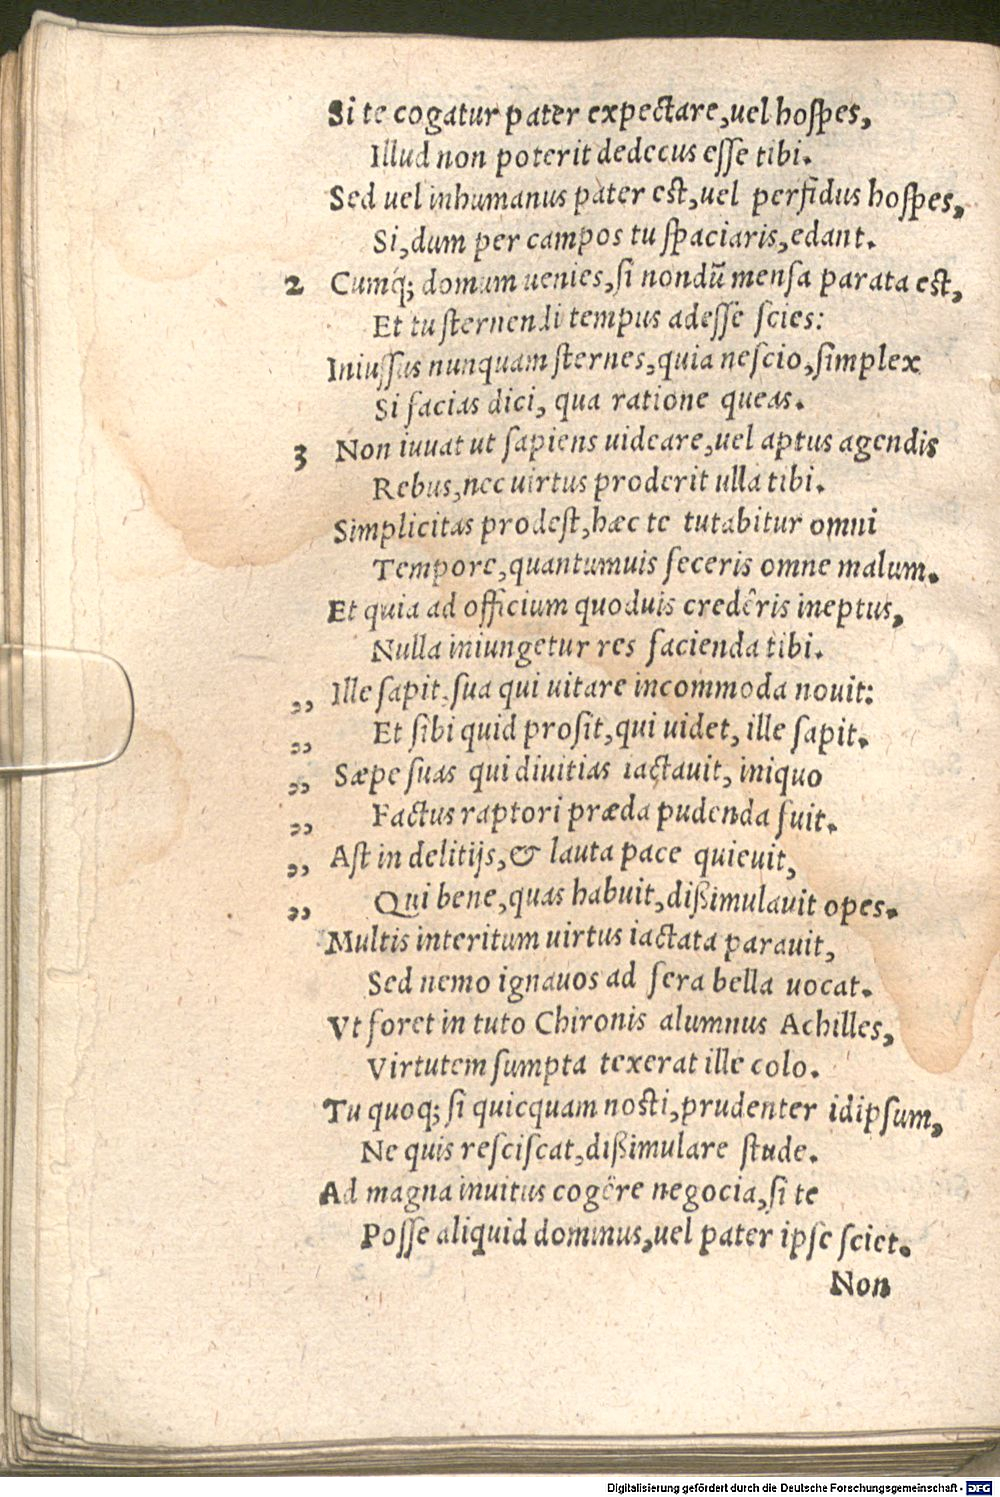 Si te cogatur pater expectare, uel hospes,
Illud non poterit dedecus esse tibi.
Sed uel inhumanus pater est, uel perfidus hospes,
Si, dum per campos tu spaciaris, edant.
2 Cumq; domum uenies, si nondũ mensa parata est,
Et tu sternendi tempus adesse scies:
Iniussus nunquam sternes, quia nescio, simplex
Si facias dici, qua ratione queas.
3 Non iuuat ut sapiens uideare, uel aptus agendis
Rebus, nec uirtus proderit ulla tibi.
Simplicitas prodest, hæc te tutabitur omni
Tempore, quantumuis feceris omne malum.
Et quia ad officium quoduis credêris ineptus,
Nulla iniungetur res facienda tibi.
„ Ille sapit, sua qui uitare incommoda nouit:
„ Et sibi quid prosit, qui uidet, ille sapit.
„ Sæpe suas qui diuitias iactauit, iniquo
„ Factus raptori præda pudenda fuit.
„ Ast in delitijs, & lauta pace quieuit,
„ Qui bene, quas habuit, dißimulauit opes.
Multis interitum uirtus iactata parauit,
Sed nemo ignauos ad fera bella uocat.
Vt foret in tuto Chironis alumnus Achilles,
Virtutem sumpta texerat ille colo.
Tu quoq; si quicquam nosti, prudenter idipsum,
Ne quis resciscat, dißimulare stude.
Ad magna inuitus cogêre negocia, si te
Posse aliquid dominus, uel pater ipse sciet.
Non
Digitalisierung gefördert durch die Deutsche Forschungsgemeinschaft - DFG